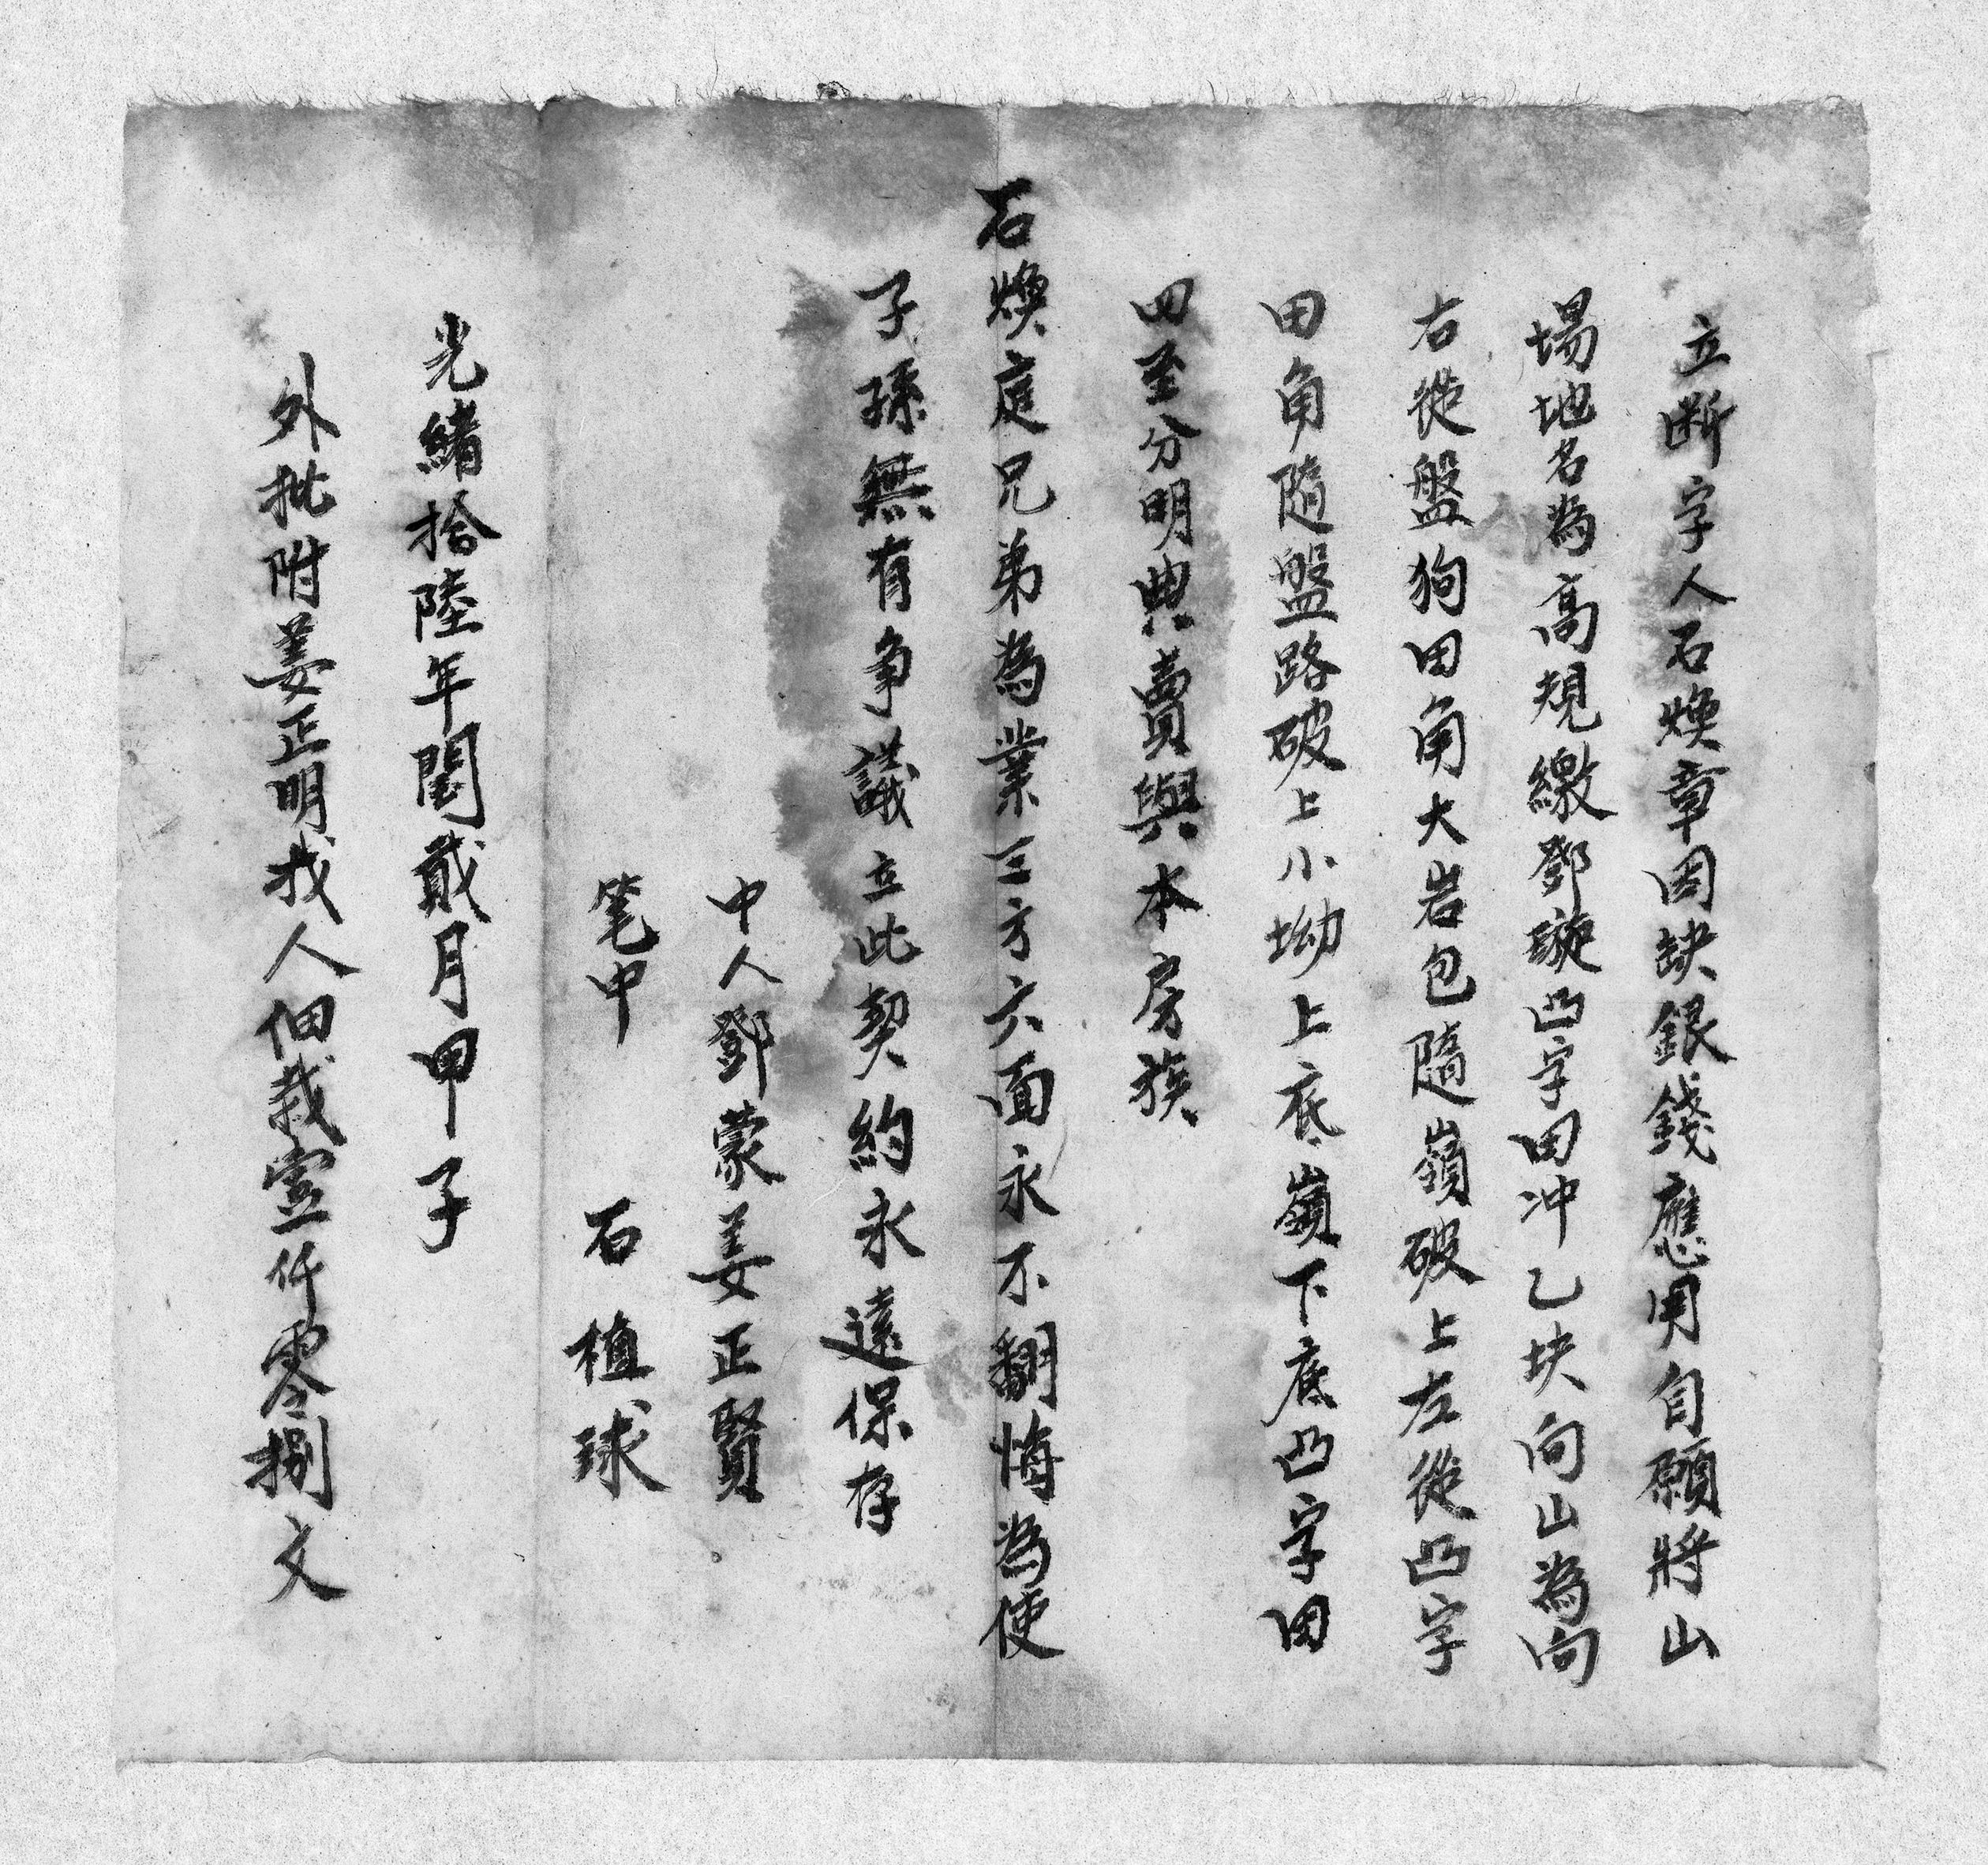 立断字人石煥章因缺銀錢應用自願將山
場地名為高規繳鄧璇凸字田冲乙块向山為向
右從盤狗田角大岩包隨嶺破上左從凸字
田角隨盤路破上小坳上底嶺下底凸字田
四至分明典賣與本房族
石煥庭兄弟為業三方六面永不翻悔為使
子孫無有争議立此契約永遠保存
中人鄧蒙姜正賢
笔中 石植球
光緒拾陸年閏貳月甲子
外批附姜正明找人佃栽壹仟零捌文